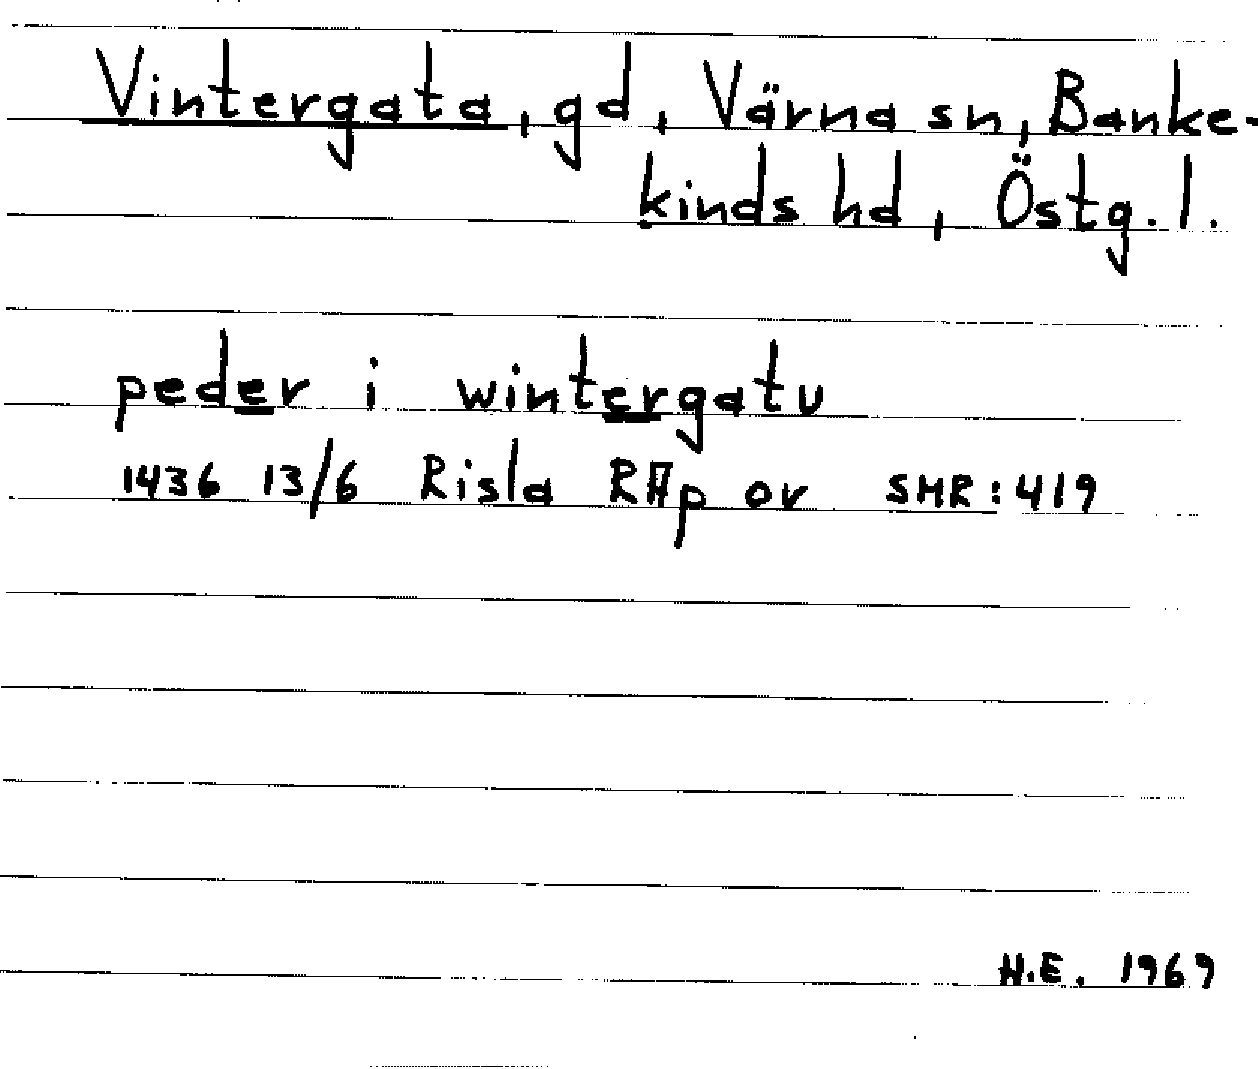 Vintergata, gd, Värna sn, Banke-
kinds hd, Östg. l.
peder i wintergatu
1436 13/6 Risla RAp or SMR:419
H.E. 1969